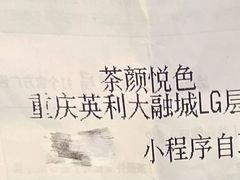 茶颜悦色
重庆英利大融城LG层
小程序自